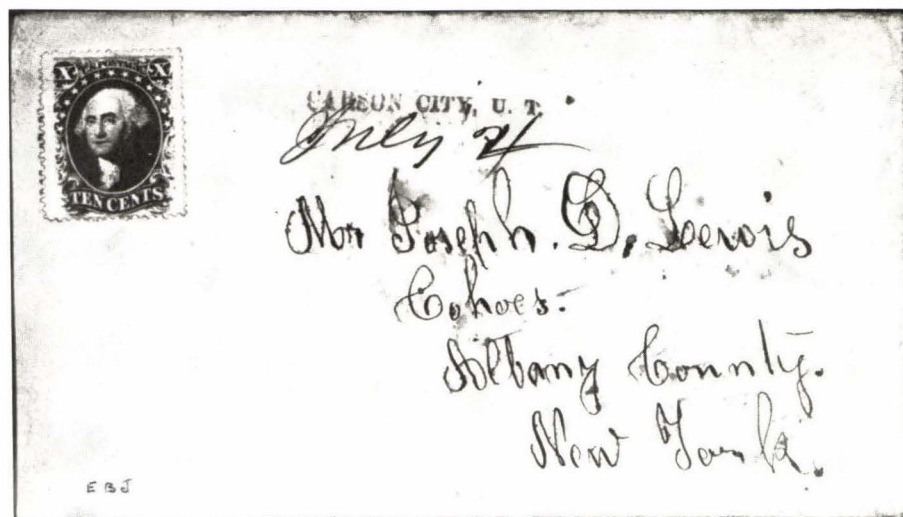 X U.S. POSTAGE X
TEN CENTS
CARSON CITY, U. T.
July 21
Mr Joseph. D, Lewis
Cohoes.
Albany County.
New York.
E B J